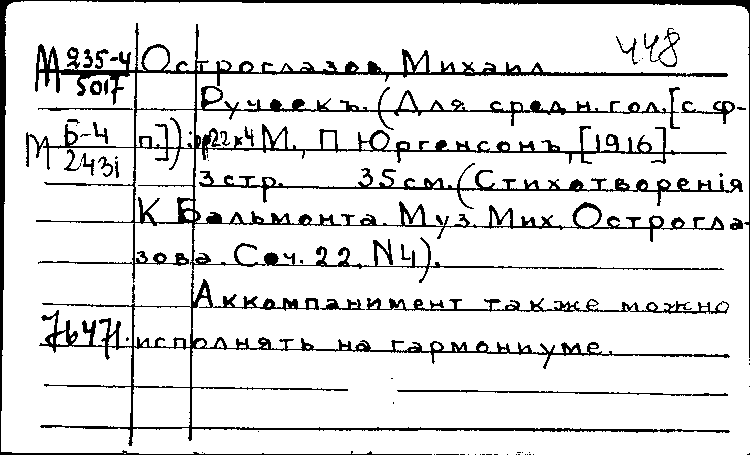 448
М 235-4/5017 Остроглазов, Михаил
Ручеекъ. (Для средн. гол. [с ф-
М Б-4/243i п.]) : op22 №4 М., П Юргенсонъ, [1916].
3 стр. 35 см. (Стихотворенiя
К Бальмонта. Муз. Мих. Острогла-
зова. Соч. 22, N4).
Аккомпанимент также можно
76471. исполнять на гармониуме.